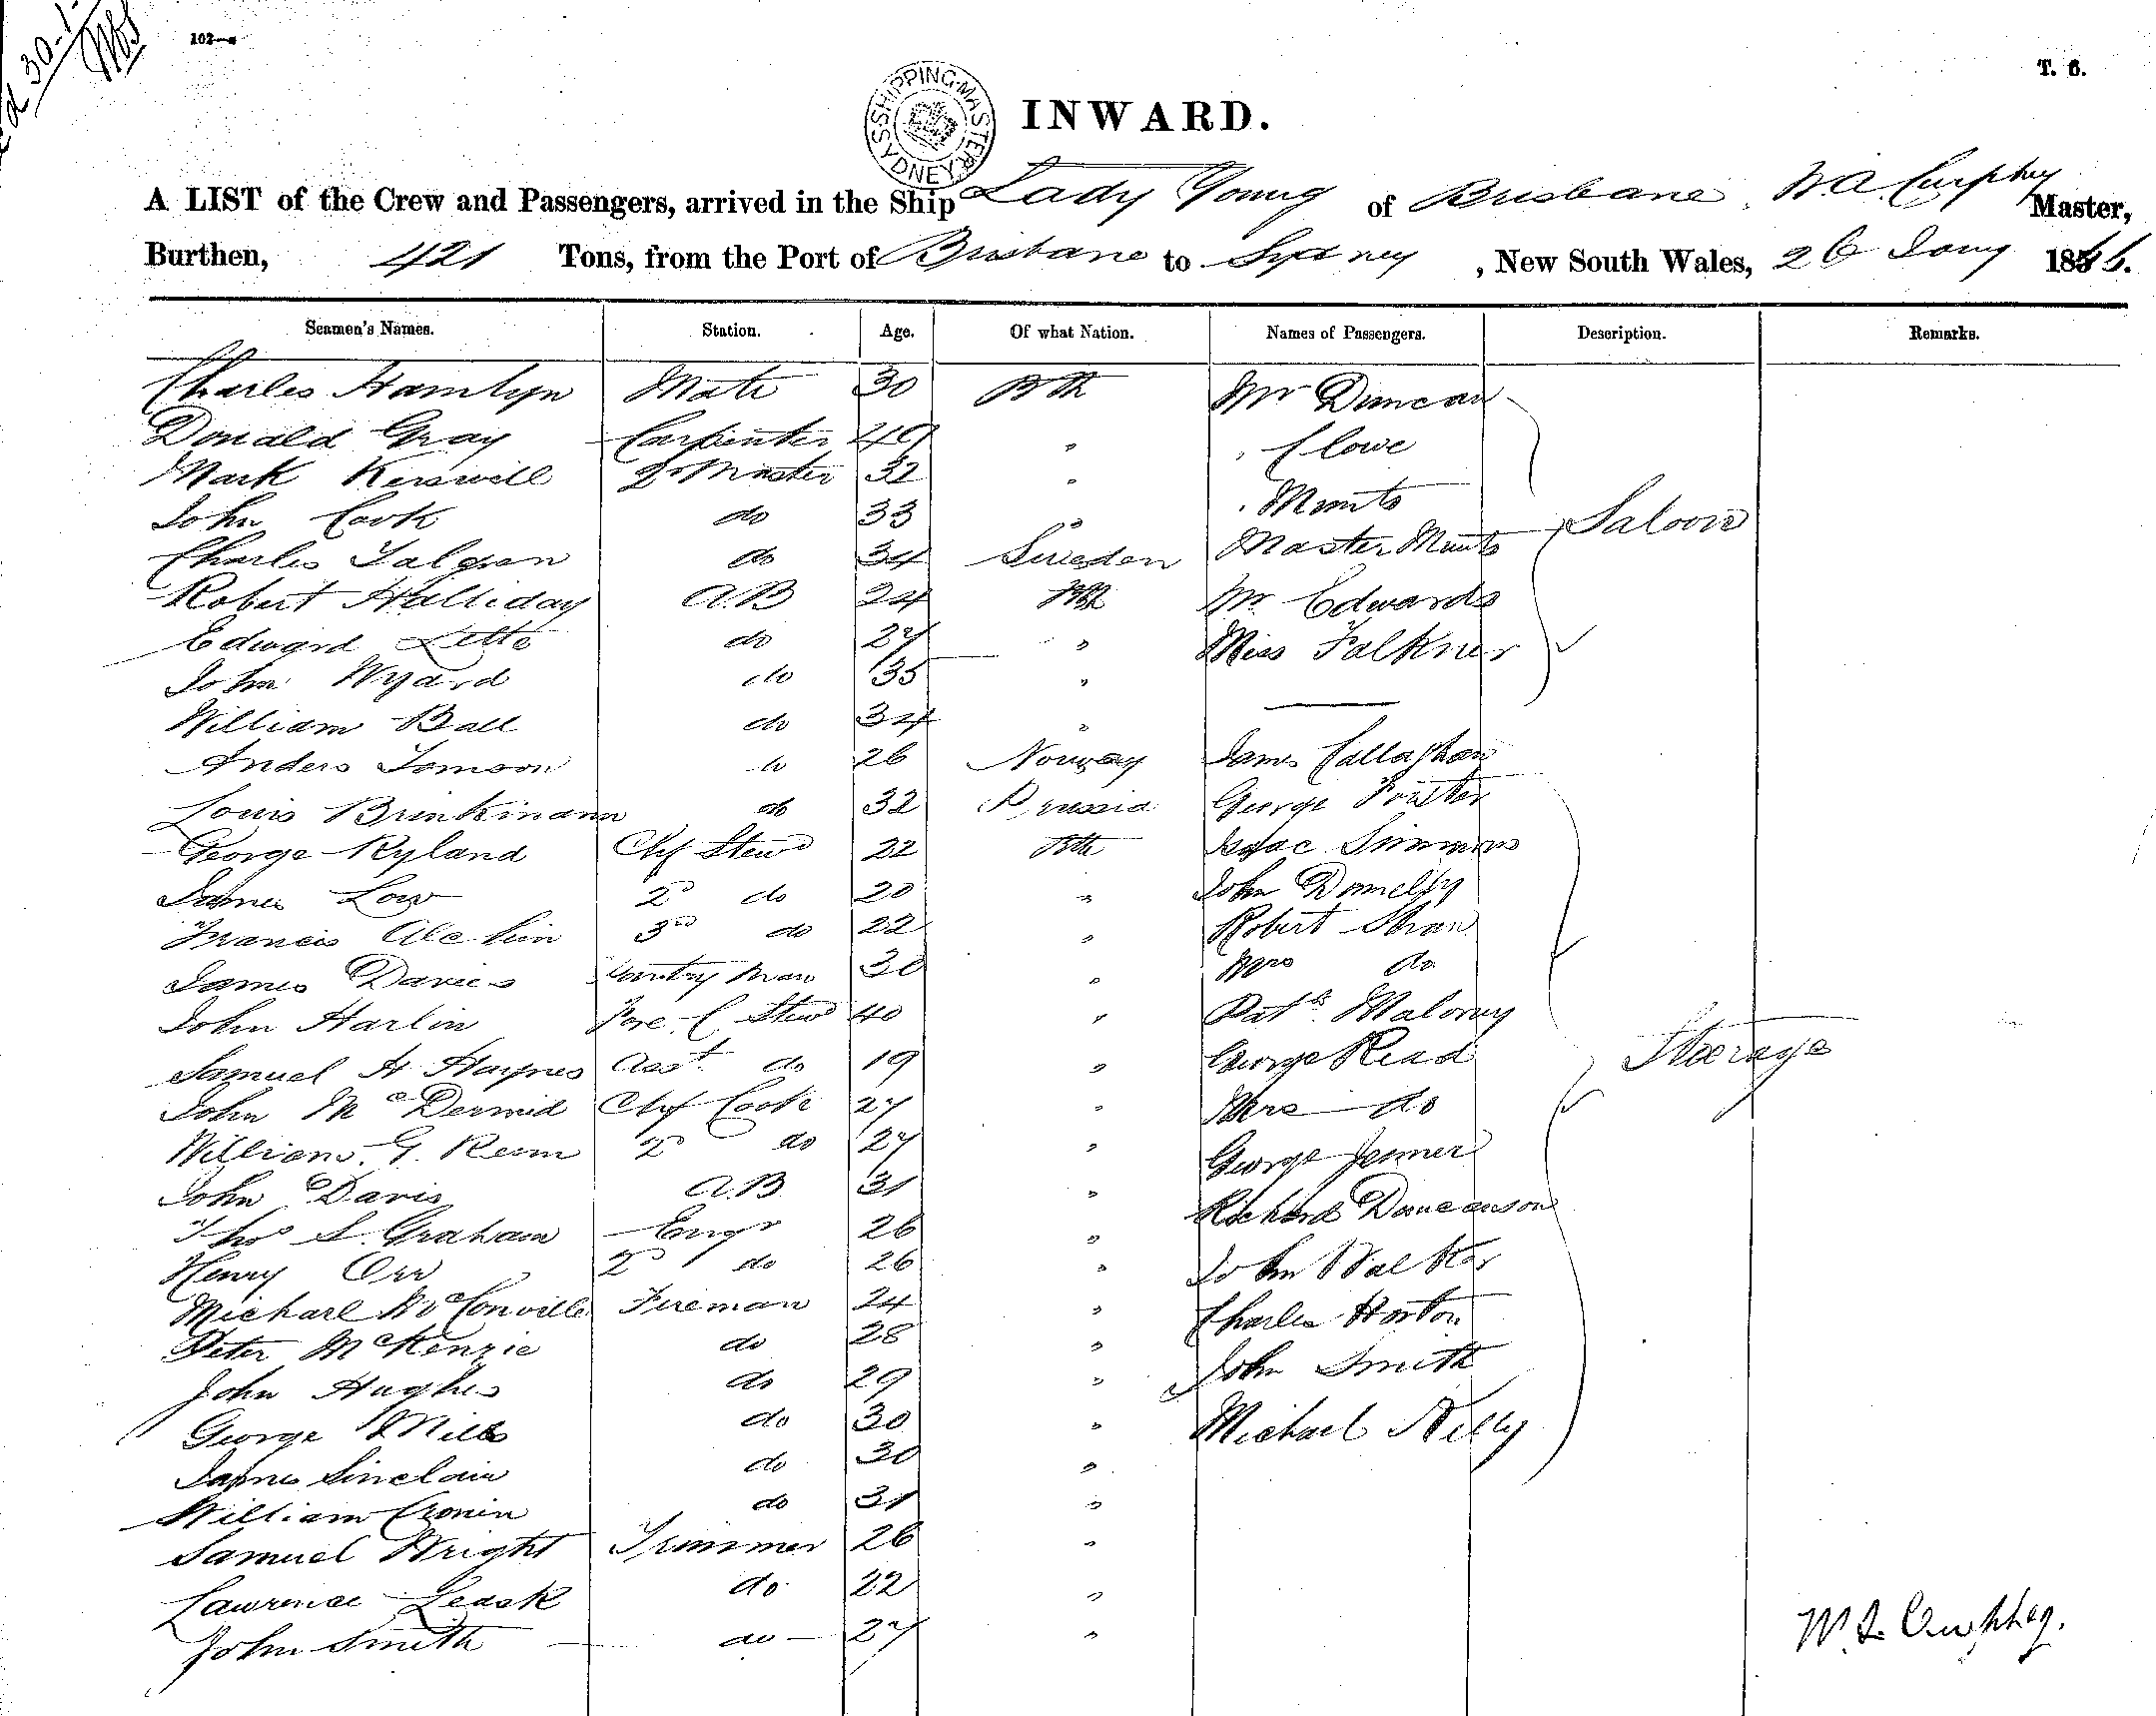 102—a
T. 6.
SHIPPING MASTER SYDNEY
INWARD.
A LIST of the Crew and Passengers, arrived in the Ship Lady Young of Brisbane, Master,
Burthen, 421 Tons, from the Port of Brisbane to Sydney, New South Wales, 26 Jany 1866.
Seamen's Names. Station. Age. Of what Nation. Names of Passengers. Description. Remarks.
Charles Hamlyn Mate 30 Bth Mr Duncan
Donald Gray Carpenter 49 " " Clowe
Mark Kerswell Qr Master 32 " " Munts
John Cook do 33 " Master Munts Saloon
Charles Talgren do 34 Sweden Mr Edwards
Robert Halliday A.B 24 Bth Miss Falkner
Edward Letts do 27 "
John Wyard do 35 "
William Ball do 34 "
Anders Tomson do 26 Norway James Callaghan
Louis Brinkmann do 32 Prussia George Forster
George Ryland Chf Stewd 22 Bth Isaac Simmons
James Low 2d do 20 " John Donnelly
Francis 3rd do 22 " Robert Shaw
James Davies Pantry man 30 " Mrs do
John Harlin Fore C Stewd 40 " Patk Maloney
Samuel H Haynes Asst do 19 " George Read Steerage
John McDermid Chf Cook 27 " Mrs do
William G. 2d do 27 " George Jenner
John Davis A.B. 31 " Richard Duncanson
Thos S. Graham Engr 26 " John Walker
Henry Orr 2d do 26 " Charles Horton
Michael McConville Fireman 24 " John Smith
Peter McKenzie do 28 " Michael Kelly
John Hughes do 29 "
George Mills do 30 "
James Sinclair do 30 "
William Cronin do 31 "
Samuel Wright Trimmer 26 "
Lawrence Leask do 22 "
John Smith do 27 "